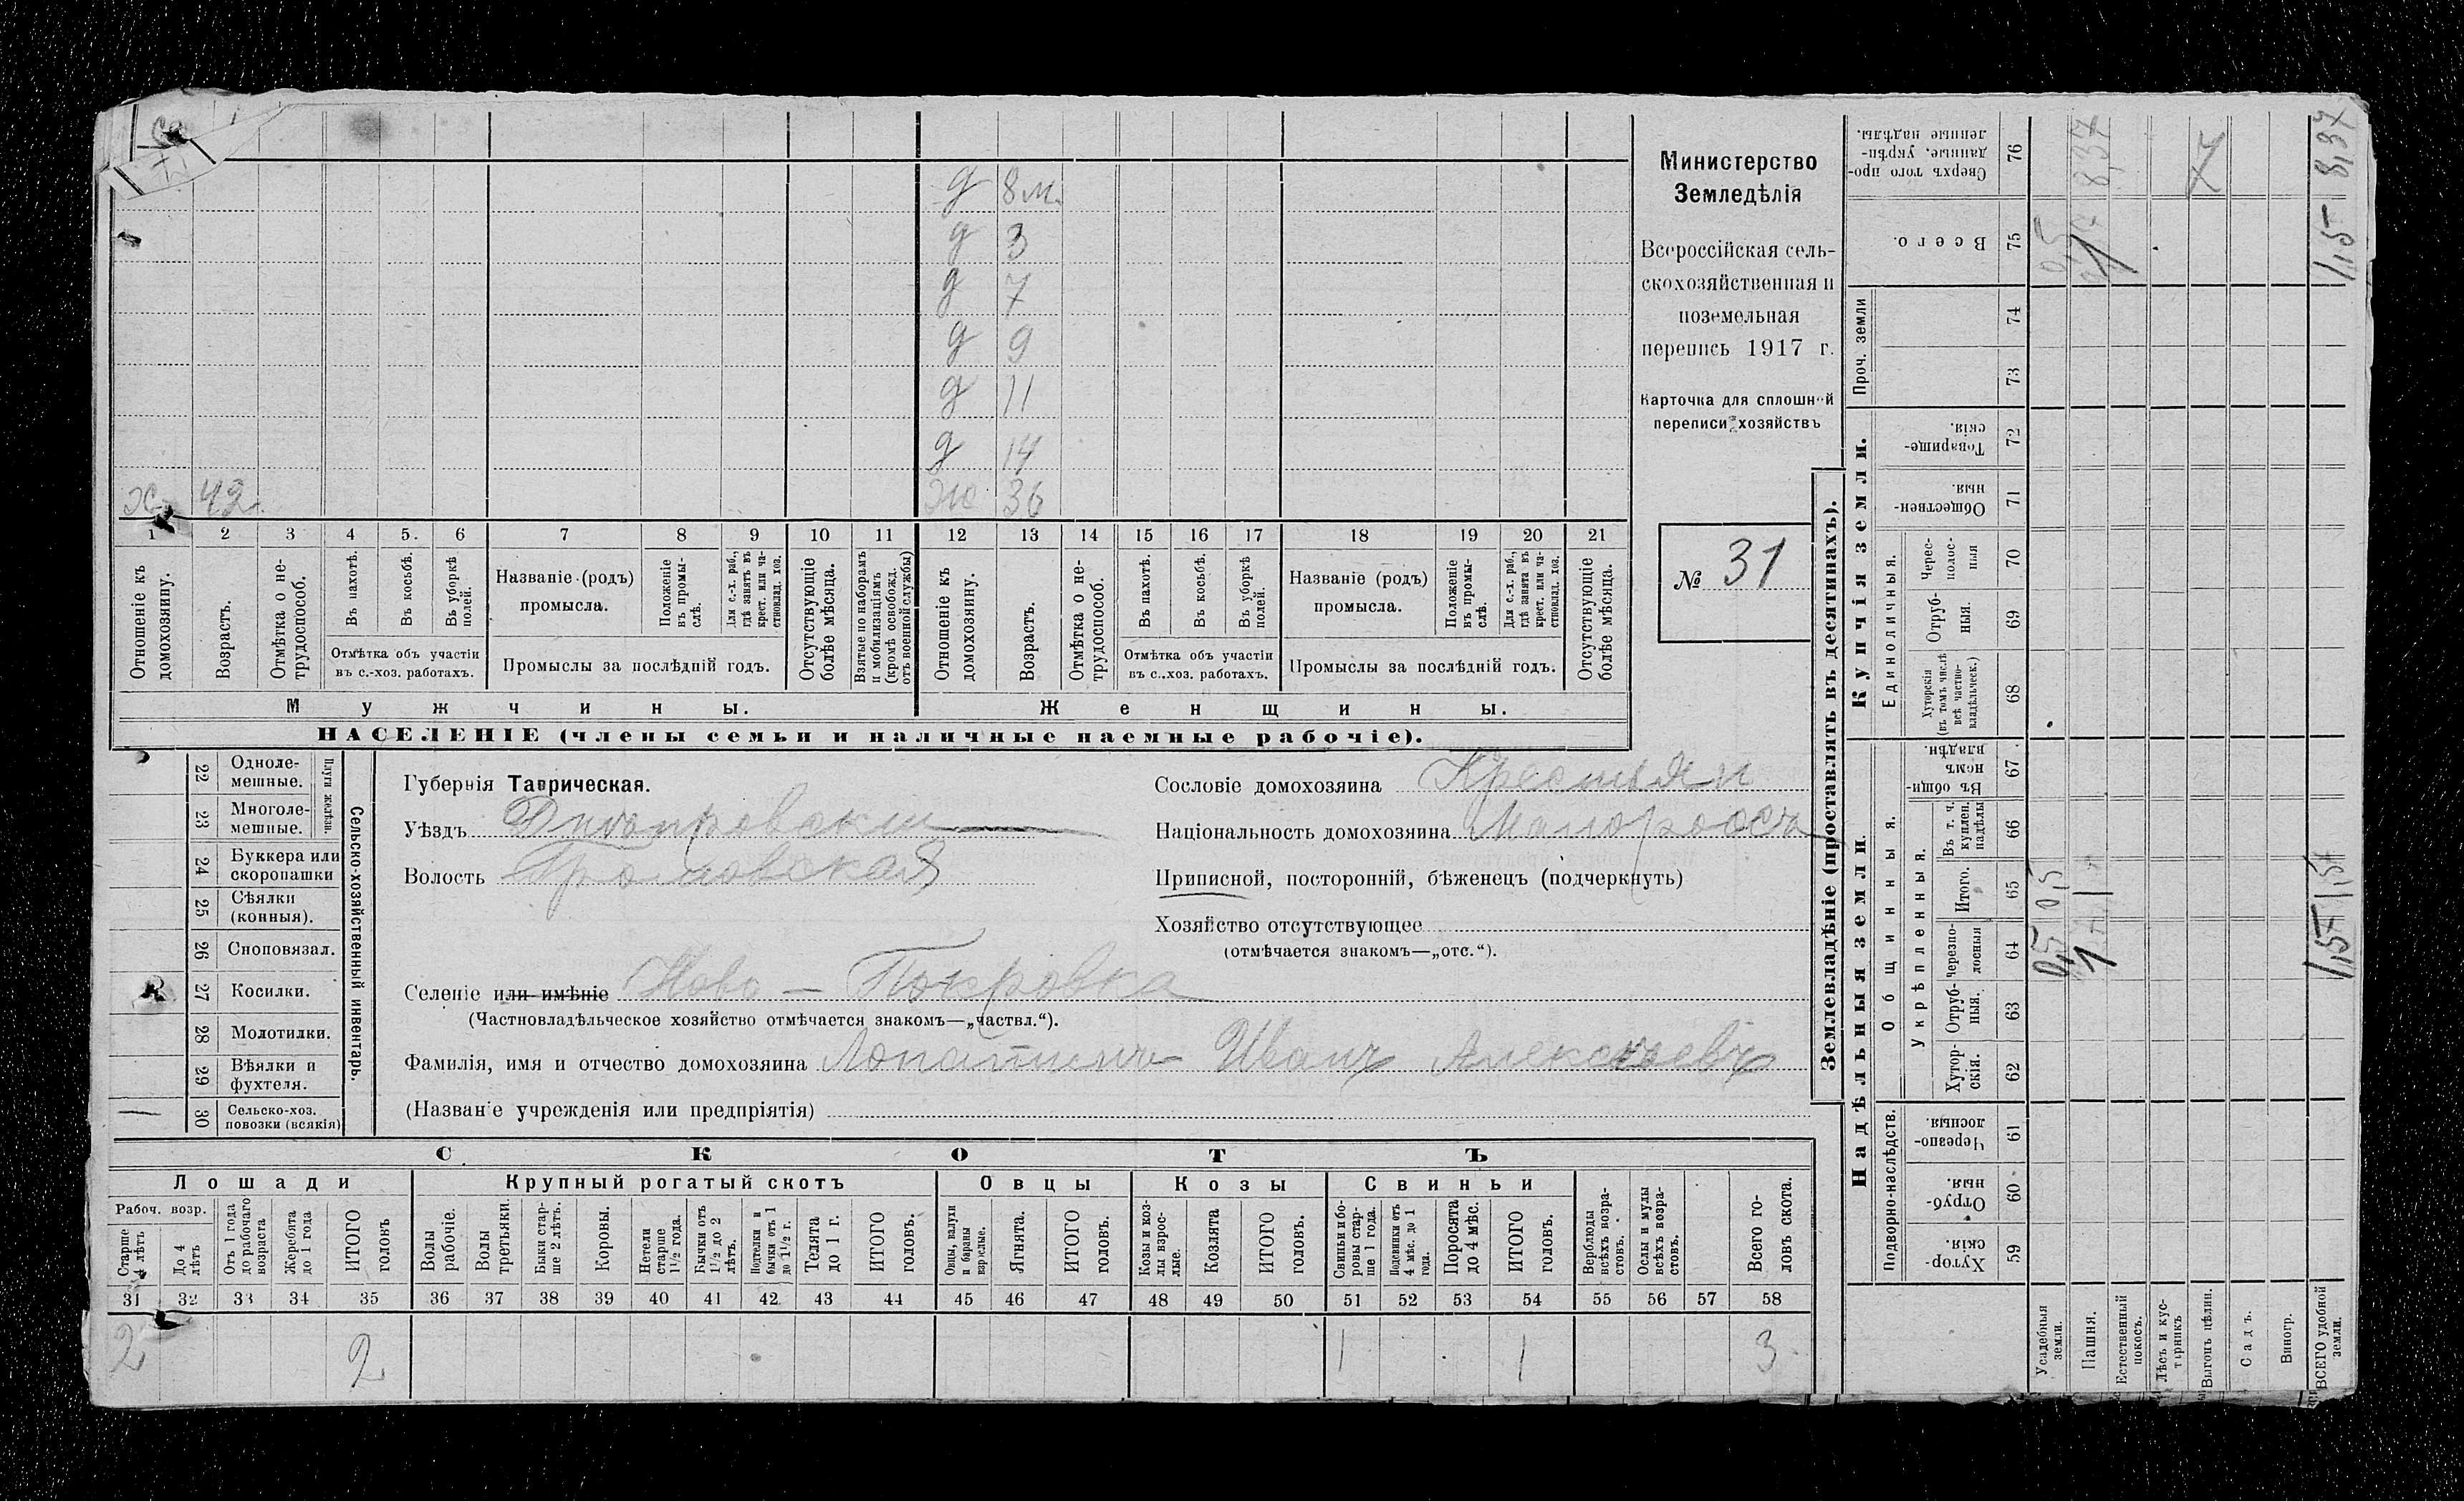 д 8 м.
д 3
д 7
д 9
д 11
д 14
х. 42. ж 36
1 2 3 4 5. 6 7 8 9 10 11 12 13 14 15 16 17 18 19 20 21
Отношеніе къ домохозяину.
Возрастъ.
Отмѣтка о не-трудоспособ.
Въ пахотѣ.
Въ косьбѣ.
Въ уборкѣ полей.
Отмѣтка объ участіи
въ с.-хоз. работахъ.
Названіе (родъ)
промысла.
Положеніе въ промы-слѣ.
Для с.-х. раб., гдѣ занятъ въ крест. или ча-стновлад. хоз.
Промыслы за послѣдній годъ.
Отсутствующіе болѣе мѣсяца.
Взятые по наборамъ и мобилизаціямъ (кромѣ освобожд. отъ военной службы)
Отношеніе къ домохозяину.
Возрастъ.
Отмѣтка о не-трудоспособ.
Въ пахотѣ.
Въ косьбѣ.
Въ уборкѣ полей.
Отмѣтка объ участіи
въ с.-хоз. работахъ.
Названіе (родъ)
промысла.
Положеніе въ промы-слѣ.
Для с.-х. раб., гдѣ занята въ крест. или ча-стновлад. хоз.
Промыслы за послѣдній годъ.
Отсутствующіе болѣе мѣсяца.
Мужчины. Женщины.
НАСЕЛЕНІЕ (члены семьи и наличные наемные рабочіе).
Министерство
Земледѣлія
Всероссійская сель-
скохозяйственная и
поземельная
перепись 1917 г.
Карточка для сплошной
переписи хозяйствъ
№ 31
22 Одноле-мешные.
23 Многоле-мешные.
Плуги желѣзн.
24 Буккера или скоропашки
25 Сѣялки (конныя).
26 Сноповязал.
27 Косилки.
28 Молотилки.
29 Вѣялки и фухтеля.
30 Сельско-хоз. повозки (всякія)
Сельско-хозяйственный инвентарь.
Губернія Таврическая.
Уѣздъ Днѣпровскій
Волость Громовская
Сословіе домохозяина Крестьян
Национальность домохозяина Малороссъ
Приписной, посторонній, бѣженецъ (подчеркнуть)
Хозяйство отсутствующее
(отмѣчается знакомъ—„отс.“).
Селеніе или имѣніе Ново-Покровка
(Частновладѣльческое хозяйство отмѣчается знакомъ—„частвл.“).
Фамилія, имя и отчество домохозяина Лопатинъ Иванъ Алексѣевъ
(Названіе учрежденія или предпріятія)
СКОТЪ
Лошади Крупный рогатый скотъ Овцы Козы Свиньи
Рабоч. возр.
Старше 4 лѣтъ
До 4 лѣтъ
Отъ 1 года до рабочаго возраста
Жеребята до 1 года
ИТОГО головъ
Волы рабочіе.
Волы третьяки.
Быки стар-ше 2 лѣтъ.
Коровы.
Нетели старше 1½ года.
Бычки отъ 1½ до 2 лѣтъ.
Подтелки и бычки отъ 1 до 1½ г.
Телята до 1 г.
ИТОГО головъ.
Овцы, валухи и бараны взрослые.
Ягнята.
ИТОГО головъ.
Козы и коз-лы взрос-лые.
Козлята
ИТОГО головъ.
Свиньи и бо-ровы стар-ше 1 года.
Подсвинки отъ 4 мѣс. до 1 года.
Поросята до 4 мѣс.
ИТОГО головъ.
Верблюды всѣхъ возра-стовъ.
Ослы и мулы всѣхъ возра-стовъ.
Всего го-ловъ скота.
31 32 33 34 35 36 37 38 39 40 41 42 43 44 45 46 47 48 49 50 51 52 53 54 55 56 57 58
2 2 1 1 3
Землевладѣніе (проставлять въ десятинахъ).
Надѣльныя земли. Купчія земли.
Подворно-наслѣдств.
Общинныя.
Укрѣпленныя.
Единоличныя.
Проч. земли
Хутор-скія. 59
Отруб-ныя. 60
Черезпо-лосныя. 61
Хутор-скія. 62
Отруб-ныя. 63
Черезпо-лосныя 64
Итого. 65
Въ т. ч. куплен. надѣлы 66
Въ общин-номъ владѣн. 67
Хуторскія (въ томъ числѣ всѣ частно-владѣльческ.) 68
Отруб-ныя. 69
Черес-полос-ныя 70
Обществен-ныя. 71
Товарище-скія. 72
73
74
Всего. 75
Сверхъ того про-данные, укрѣп-ленные надѣлы. 76
Усадебныя земли. 0,5 0,5 0,5
Пашня. 1 1 1 8,37
Естественный покосъ.
Лѣсъ и кус-тарникъ
Выгонъ цѣлин.
Садъ.
Виногр.
ВСЕГО удобной земли. 1,5 1,5 1,5 8,37